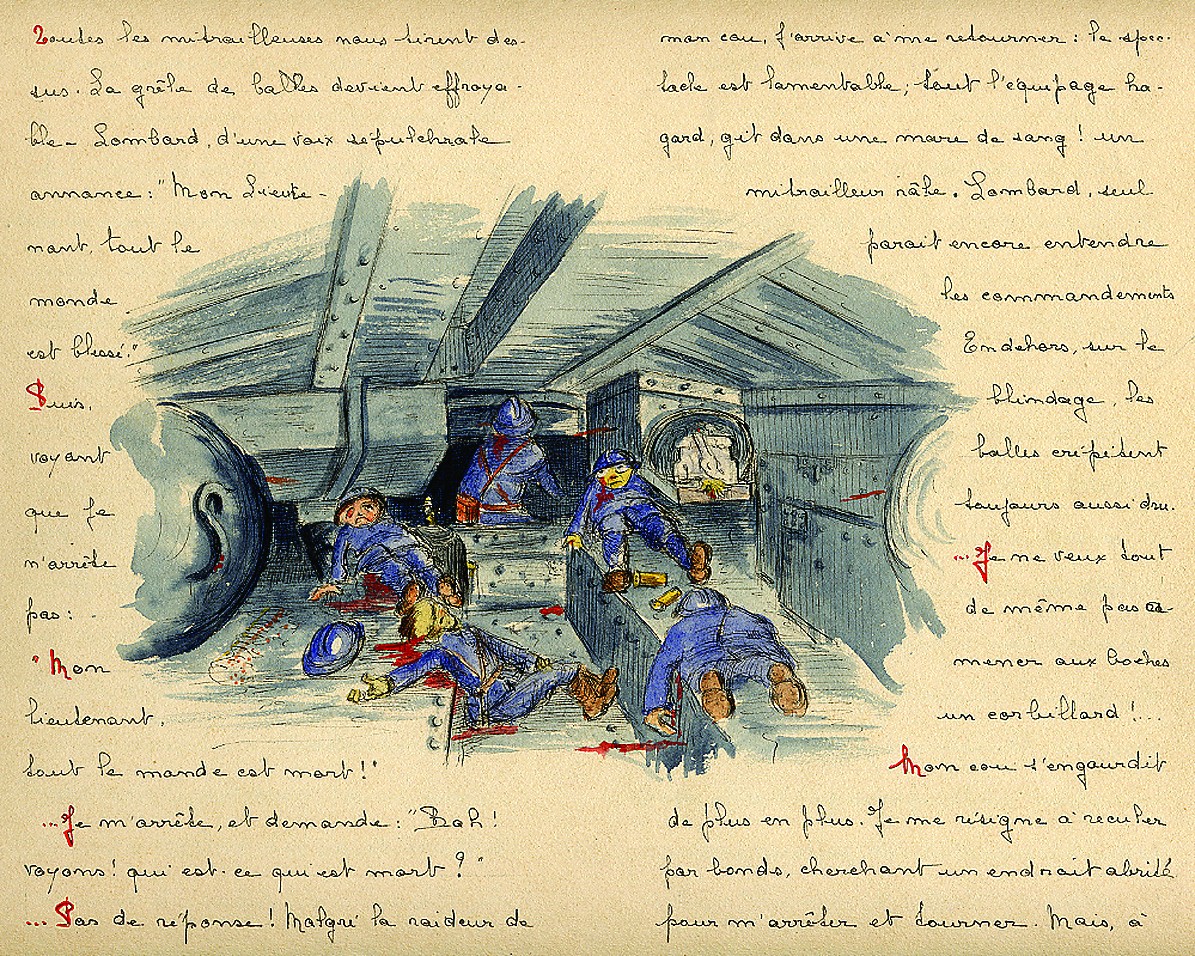 Toutes les mitrailleuses nous tirent des-
sus. La grêle de balles devient effroya-
ble - Lombard, d'une voix sépulchrale
annonce : "Mon Lieute-
nant, tout le
monde
est blessé."
Puis,
voyant
que je
n'arrête
pas :
"Mon
lieutenant,
tout le monde est mort !"
... Je m'arrête, et demande : "Bah !
voyons ! qui est-ce qui est mort ?"
... Pas de réponse ! Malgré la raideur de
mon cou, j'arrive à me retourner : le spec-
tacle est lamentable ; tout l'équipage ha-
gard, gît dans une mare de sang ! un
mitrailleur râle. Lombard, seul
parait encore entendre
les commandements
En dehors, sur le
blindage, les
balles crépitent
toujours aussi dru.
... Je ne veux tout
de même pas a-
mener aux boches
un corbillard !...
Mon cou s'engourdit
de plus en plus. Je me résigne à reculer
par bonds, cherchant un endroit abrité
pour m'arrêter et tourner. Mais, à